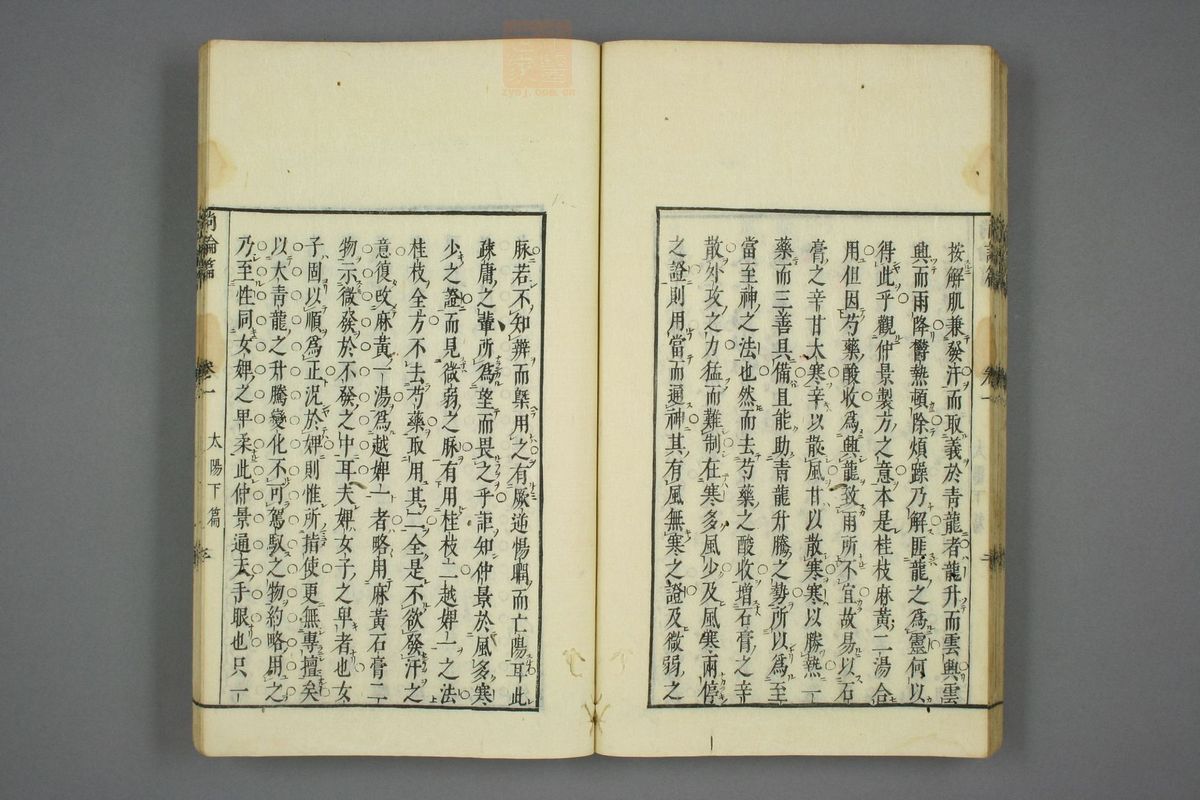 按解肌兼發汗而取義於青龍者龍升而雲興雲
興而雨降鬱熱頓除煩躁乃解匪龍之爲靈何以
得此乎觀仲景製方之意本是桂枝麻黃二湯合
用但因芍藥酸收爲興龍致雨所不宜故易以石
膏之辛甘大寒辛以散風甘以散寒寒以勝熱一
藥而三善具備且能助青龍升騰之勢所以爲至
當至神之法也然而去芍藥之酸收增石膏之辛
散外攻之力猛而難制在寒多風少及風寒兩停
之證則用當而通神其有風無寒之證及微弱之
脉若不知辨而槩用之有厥逆惕瞤而亡陽耳此
疎庸之輩所爲望而畏之乎詎知仲景於風多寒
少之證而見微弱之脉有用桂枝二越婢一之法
桂枝全方不去芍藥取用其二全是不欲發汗之
意復改麻黃一湯爲越婢一者略用麻黃石膏二
物示微發於不發之中耳夫婢女子之卑者也女
子固以順爲正況於婢則惟所指使更無專擅矣
以大青龍之升騰變化不可駕馭之物約略用之
乃至性同女婢之卑柔此仲景通天手眼也只一
尚論篇
卷一
太陽下篇